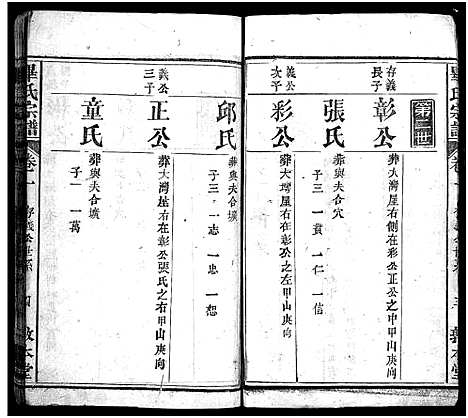 畢氏宗譜
卷一
存義公世系
三
敦本堂
第二世
存義長子
彰公
葬大灣屋右側在彩公正公之中甲山庚向
張氏
葬與夫合穴
子三 一貴 一仁 一信
義公次子
彩公
葬大灣屋右在彰公之左甲山庚向
邱氏
葬與夫合壙
子三 一志 一忠 一想
義公三子
正公
葬大灣屋右在彰公張氏之右甲山庚向
童氏
葬與夫合壙
子一 一萬
畢氏宗譜
卷一
存義公世系
四
敦本堂